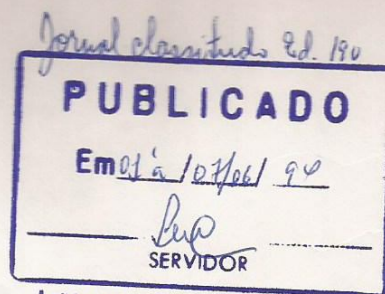 Jornal classitudo Ed. 190
PUBLICADO
Em 01 à 07/06/94
SERVIDOR